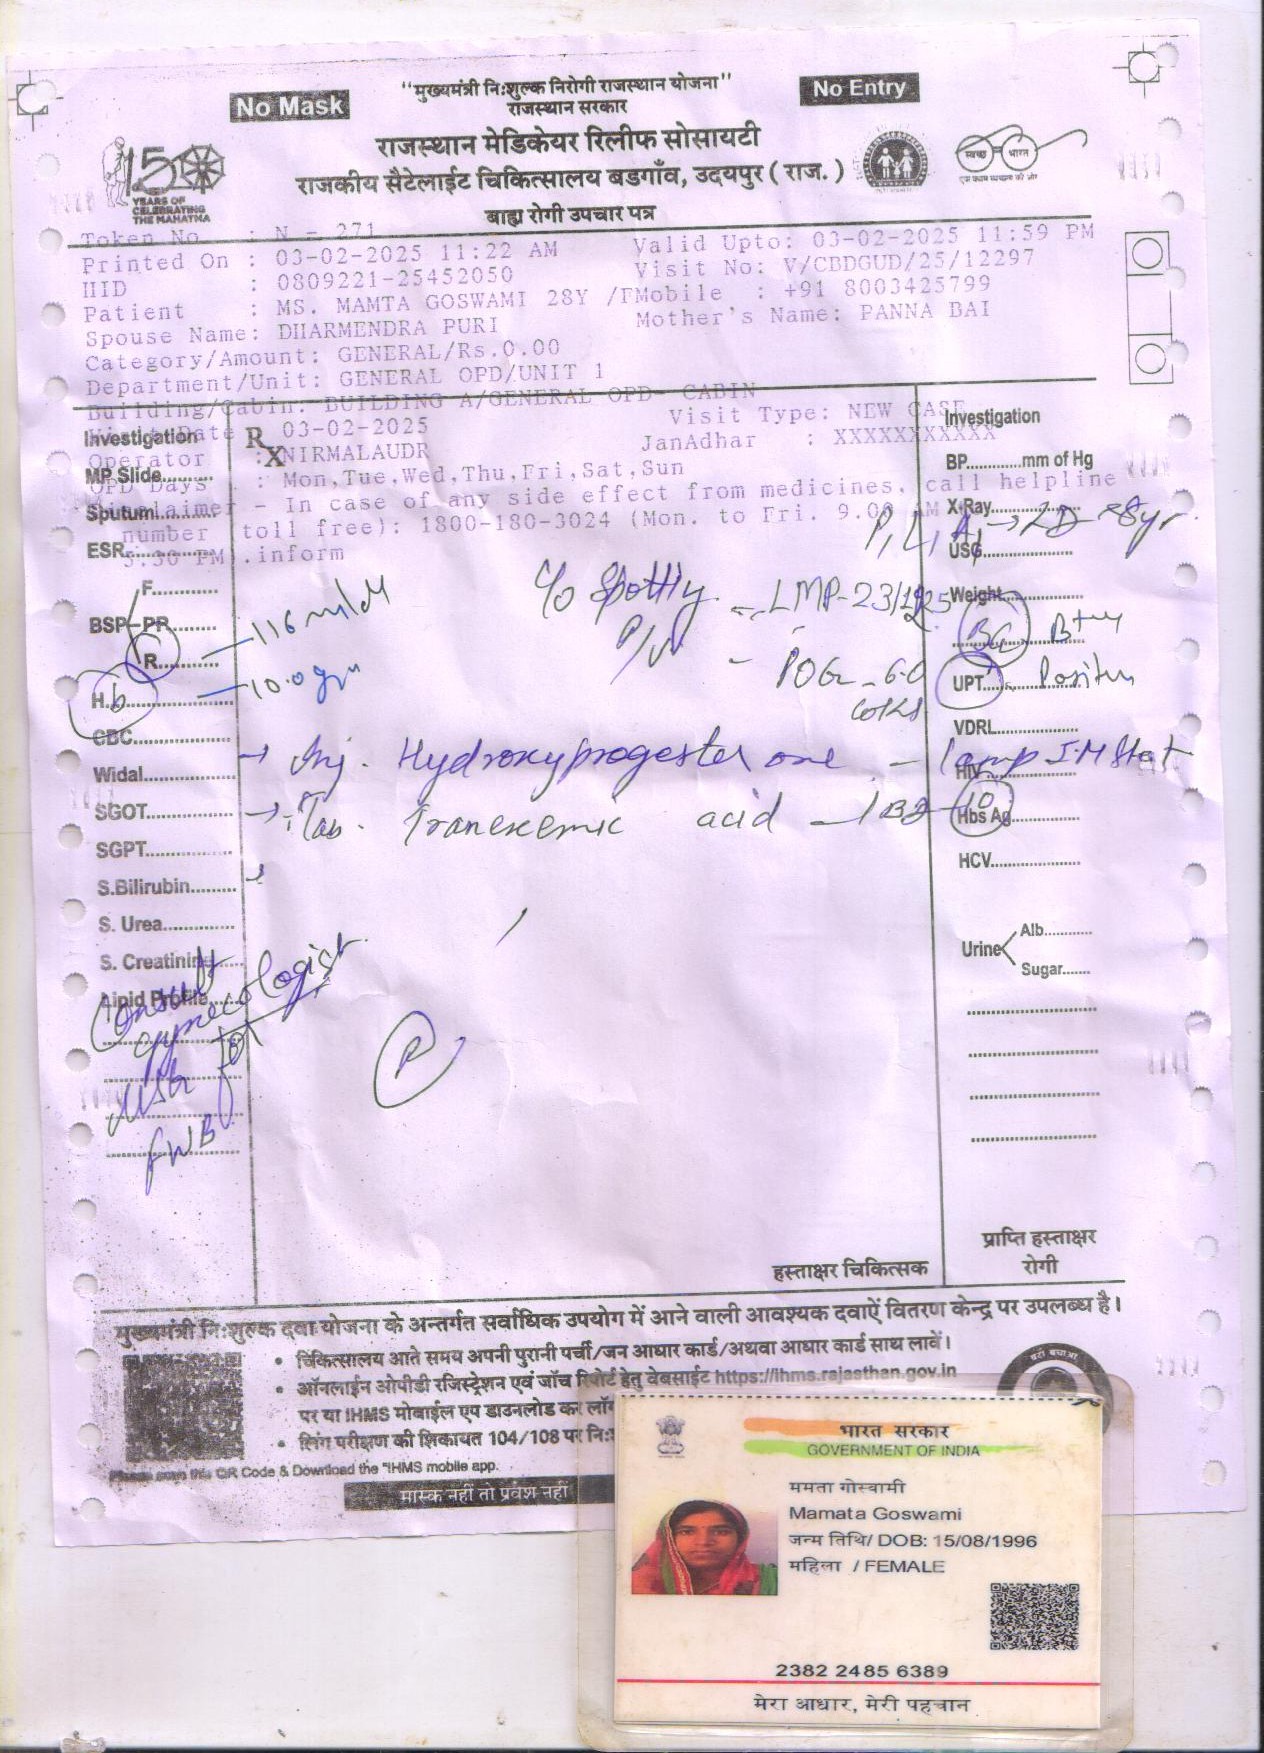 No Mask
"मुख्यमंत्री निःशुल्क निरोगी राजस्थान योजना"
राजस्थान सरकार
No Entry
राजस्थान मेडिकेयर रिलीफ सोसायटी
राजकीय सैटेलाईट चिकित्सालय बडगाँव, उदयपुर ( राज. )
बाह्य रोगी उपचार पत्र
150
YEARS OF
CELEBRATING
THE MAHATMA
स्वच्छ भारत
एक कदम स्वच्छता की ओर
Token No : N - 271
Printed On : 03-02-2025 11:22 AM Valid Upto: 03-02-2025 11:59 PM
HID : 0809221-25452050 Visit No: V/CBDGUD/25/12297
Patient : MS. MAMTA GOSWAMI 28Y /F Mobile : +91 8003425799
Spouse Name: DHARMENDRA PURI Mother's Name: PANNA BAI
Category/Amount: GENERAL/Rs.0.00
Department/Unit: GENERAL OPD/UNIT 1
Building/Cabin: BUILDING A/GENERAL OPD- CABIN
Date 03-02-2025 Visit Type: NEW CASE
Operator : NIRMALAUDR JanAdhar : XXXXXXXXXXX
OPD Days : Mon,Tue,Wed,Thu,Fri,Sat,Sun
Disclaimer - In case of any side effect from medicines, call helpline
number toll free): 1800-180-3024 (Mon. to Fri. 9.00 AM
5:30 PM).inform
Rx
Investigation
MP Slide
Sputum
ESR
BSP F
PR
R - 116 mg/dl
H.b - 10.0 gm
CBC
Widal
SGOT
SGPT
S.Bilirubin
S. Urea
S. Creatinine
Lipid Profile
Consult
gynecologist
USG for
FWB
C/o Spotting P/V
LMP-23/12/25
POG - 6.0
→ Inj. Hydroxyprogesterone - 1 amp I.M Stat
→ Tab. Tranexemic acid - 1 BD - 10
P
Investigation
BP............mm of Hg
X-Ray
USG
Weight
BG B+
UPT Positive
VDRL
HIV
Hbs Ag
HCV
Urine Alb
Sugar
हस्ताक्षर चिकित्सक
प्राप्ति हस्ताक्षर
रोगी
मुख्यमंत्री निःशुल्क दवा योजना के अन्तर्गत सर्वाधिक उपयोग में आने वाली आवश्यक दवाऐं वितरण केन्द्र पर उपलब्ध है।
• चिकित्सालय आते समय अपनी पुरानी पर्ची/जन आधार कार्ड/अथवा आधार कार्ड साथ लावें।
• ऑनलाईन ओपीडी रजिस्ट्रेशन एवं जाँच रिपोर्ट हेतु वेबसाईट https://ihms.rajasthan.gov.in
पर या IHMS मोबाईल एप डाउनलोड कर
• लिंग परीक्षण की शिकायत 104/108 पर
Please scan this QR Code & Download the "IHMS mobile app.
मास्क नहीं तो प्रवेश नहीं
भारत सरकार
GOVERNMENT OF INDIA
ममता गोस्वामी
Mamata Goswami
जन्म तिथि/ DOB: 15/08/1996
महिला / FEMALE
2382 2485 6389
मेरा आधार, मेरी पहचान